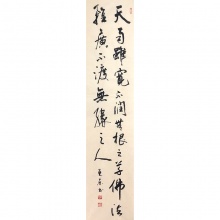 天雨雖寬不潤無根之草佛法
雖廣不渡無緣之人